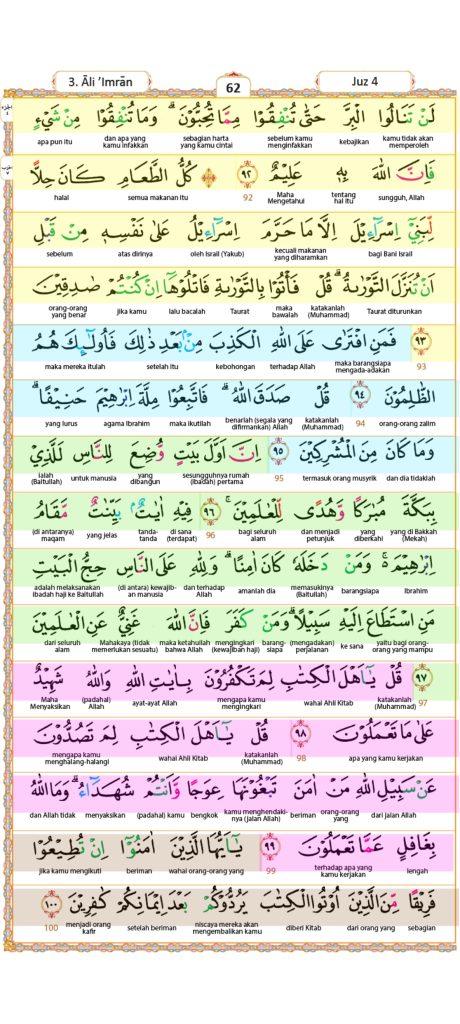 3. Āli 'Imrān
62
Juz 4
لَنْ تَنَالُوا الْبِرَّ حَتّٰى تُنْفِقُوْا مِمَّا تُحِبُّوْنَ ۗ وَمَا تُنْفِقُوْا مِنْ شَيْءٍ
kamu tidak akan memperoleh kebajikan sebelum kamu menginfakkan sebagian harta yang kamu cintai dan apa yang kamu infakkan apa pun itu
فَاِنَّ اللّٰهَ بِهٖ عَلِيْمٌ ٩٢ كُلُّ الطَّعَامِ كَانَ حِلًّا
sungguh, Allah tentang hal itu Maha Mengetahui 92 semua makanan itu halal
لِّبَنِيْٓ اِسْرَاۤءِيْلَ اِلَّا مَا حَرَّمَ اِسْرَاۤءِيْلُ عَلٰى نَفْسِهٖ مِنْ قَبْلِ
bagi Bani Israil kecuali makanan yang diharamkan oleh Israil (Yakub) atas dirinya sebelum
اَنْ تُنَزَّلَ التَّوْرٰىةُ ۗ قُلْ فَأْتُوْا بِالتَّوْرٰىةِ فَاتْلُوْهَآ اِنْ كُنْتُمْ صٰدِقِيْنَ
Taurat diturunkan katakanlah (Muhammad) maka bawalah Taurat lalu bacalah jika kamu orang-orang yang benar
٩٣ فَمَنِ افْتَرٰى عَلَى اللّٰهِ الْكَذِبَ مِنْۢ بَعْدِ ذٰلِكَ فَاُولٰۤىِٕكَ هُمُ
93 maka barangsiapa mengada-adakan terhadap Allah kebohongan setelah itu maka mereka itulah
الظّٰلِمُوْنَ ٩٤ قُلْ صَدَقَ اللّٰهُ ۗ فَاتَّبِعُوْا مِلَّةَ اِبْرٰهِيْمَ حَنِيْفًا ۗ
orang-orang zalim 94 katakanlah (Muhammad) benarlah (segala yang difirmankan) Allah maka ikutilah agama Ibrahim yang lurus
وَمَا كَانَ مِنَ الْمُشْرِكِيْنَ ٩٥ اِنَّ اَوَّلَ بَيْتٍ وُّضِعَ لِلنَّاسِ لَلَّذِيْ
dan dia tidaklah termasuk orang musyrik 95 sesungguhnya rumah (ibadah) pertama yang dibangun untuk manusia ialah (Baitullah)
بِبَكَّةَ مُبٰرَكًا وَّهُدًى لِّلْعٰلَمِيْنَ ۚ ٩٦ فِيْهِ اٰيٰتٌۢ بَيِّنٰتٌ مَّقَامُ
yang di Bakkah (Mekah) yang diberkahi dan menjadi petunjuk bagi seluruh alam 96 di sana (terdapat) tanda-tanda yang jelas (di antaranya) maqam
اِبْرٰهِيْمَ ەۚ وَمَنْ دَخَلَهٗ كَانَ اٰمِنًا ۗ وَلِلّٰهِ عَلَى النَّاسِ حِجُّ الْبَيْتِ
Ibrahim barangsiapa memasukinya (Baitullah) amanlah dia dan terhadap Allah (di antara) kewajiban manusia adalah melaksanakan ibadah haji ke Baitullah
مَنِ اسْتَطَاعَ اِلَيْهِ سَبِيْلًا ۗ وَمَنْ كَفَرَ فَاِنَّ اللّٰهَ غَنِيٌّ عَنِ الْعٰلَمِيْنَ
yaitu bagi orang-orang yang mampu ke sana (mengadakan) perjalanan barangsiapa mengingkari (kewajiban haji) maka ketahuilah bahwa Allah Mahakaya (tidak memerlukan sesuatu) dari seluruh alam
٩٧ قُلْ يٰٓاَهْلَ الْكِتٰبِ لِمَ تَكْفُرُوْنَ بِاٰيٰتِ اللّٰهِ وَاللّٰهُ شَهِيْدٌ
97 katakanlah (Muhammad) wahai Ahli Kitab mengapa kamu mengingkari ayat-ayat Allah (padahal) Allah Maha Menyaksikan
عَلٰى مَا تَعْمَلُوْنَ ٩٨ قُلْ يٰٓاَهْلَ الْكِتٰبِ لِمَ تَصُدُّوْنَ
apa yang kamu kerjakan 98 katakanlah (Muhammad) wahai Ahli Kitab mengapa kamu menghalang-halangi
عَنْ سَبِيْلِ اللّٰهِ مَنْ اٰمَنَ تَبْغُوْنَهَا عِوَجًا وَّاَنْتُمْ شُهَدَاۤءُ ۗ وَمَا اللّٰهُ
dari jalan Allah orang-orang yang beriman kamu menghendaki-nya (jalan Allah) bengkok (padahal) kamu menyaksikan dan Allah tidak
بِغَافِلٍ عَمَّا تَعْمَلُوْنَ ٩٩ يٰٓاَيُّهَا الَّذِيْنَ اٰمَنُوْٓا اِنْ تُطِيْعُوْا
lengah terhadap apa yang kamu kerjakan 99 wahai orang-orang yang beriman jika kamu mengikuti
فَرِيْقًا مِّنَ الَّذِيْنَ اُوْتُوا الْكِتٰبَ يَرُدُّوْكُمْ بَعْدَ اِيْمَانِكُمْ كٰفِرِيْنَ ١٠٠
sebagian dari orang yang diberi Kitab niscaya mereka akan mengembalikan kamu setelah beriman menjadi orang kafir 100